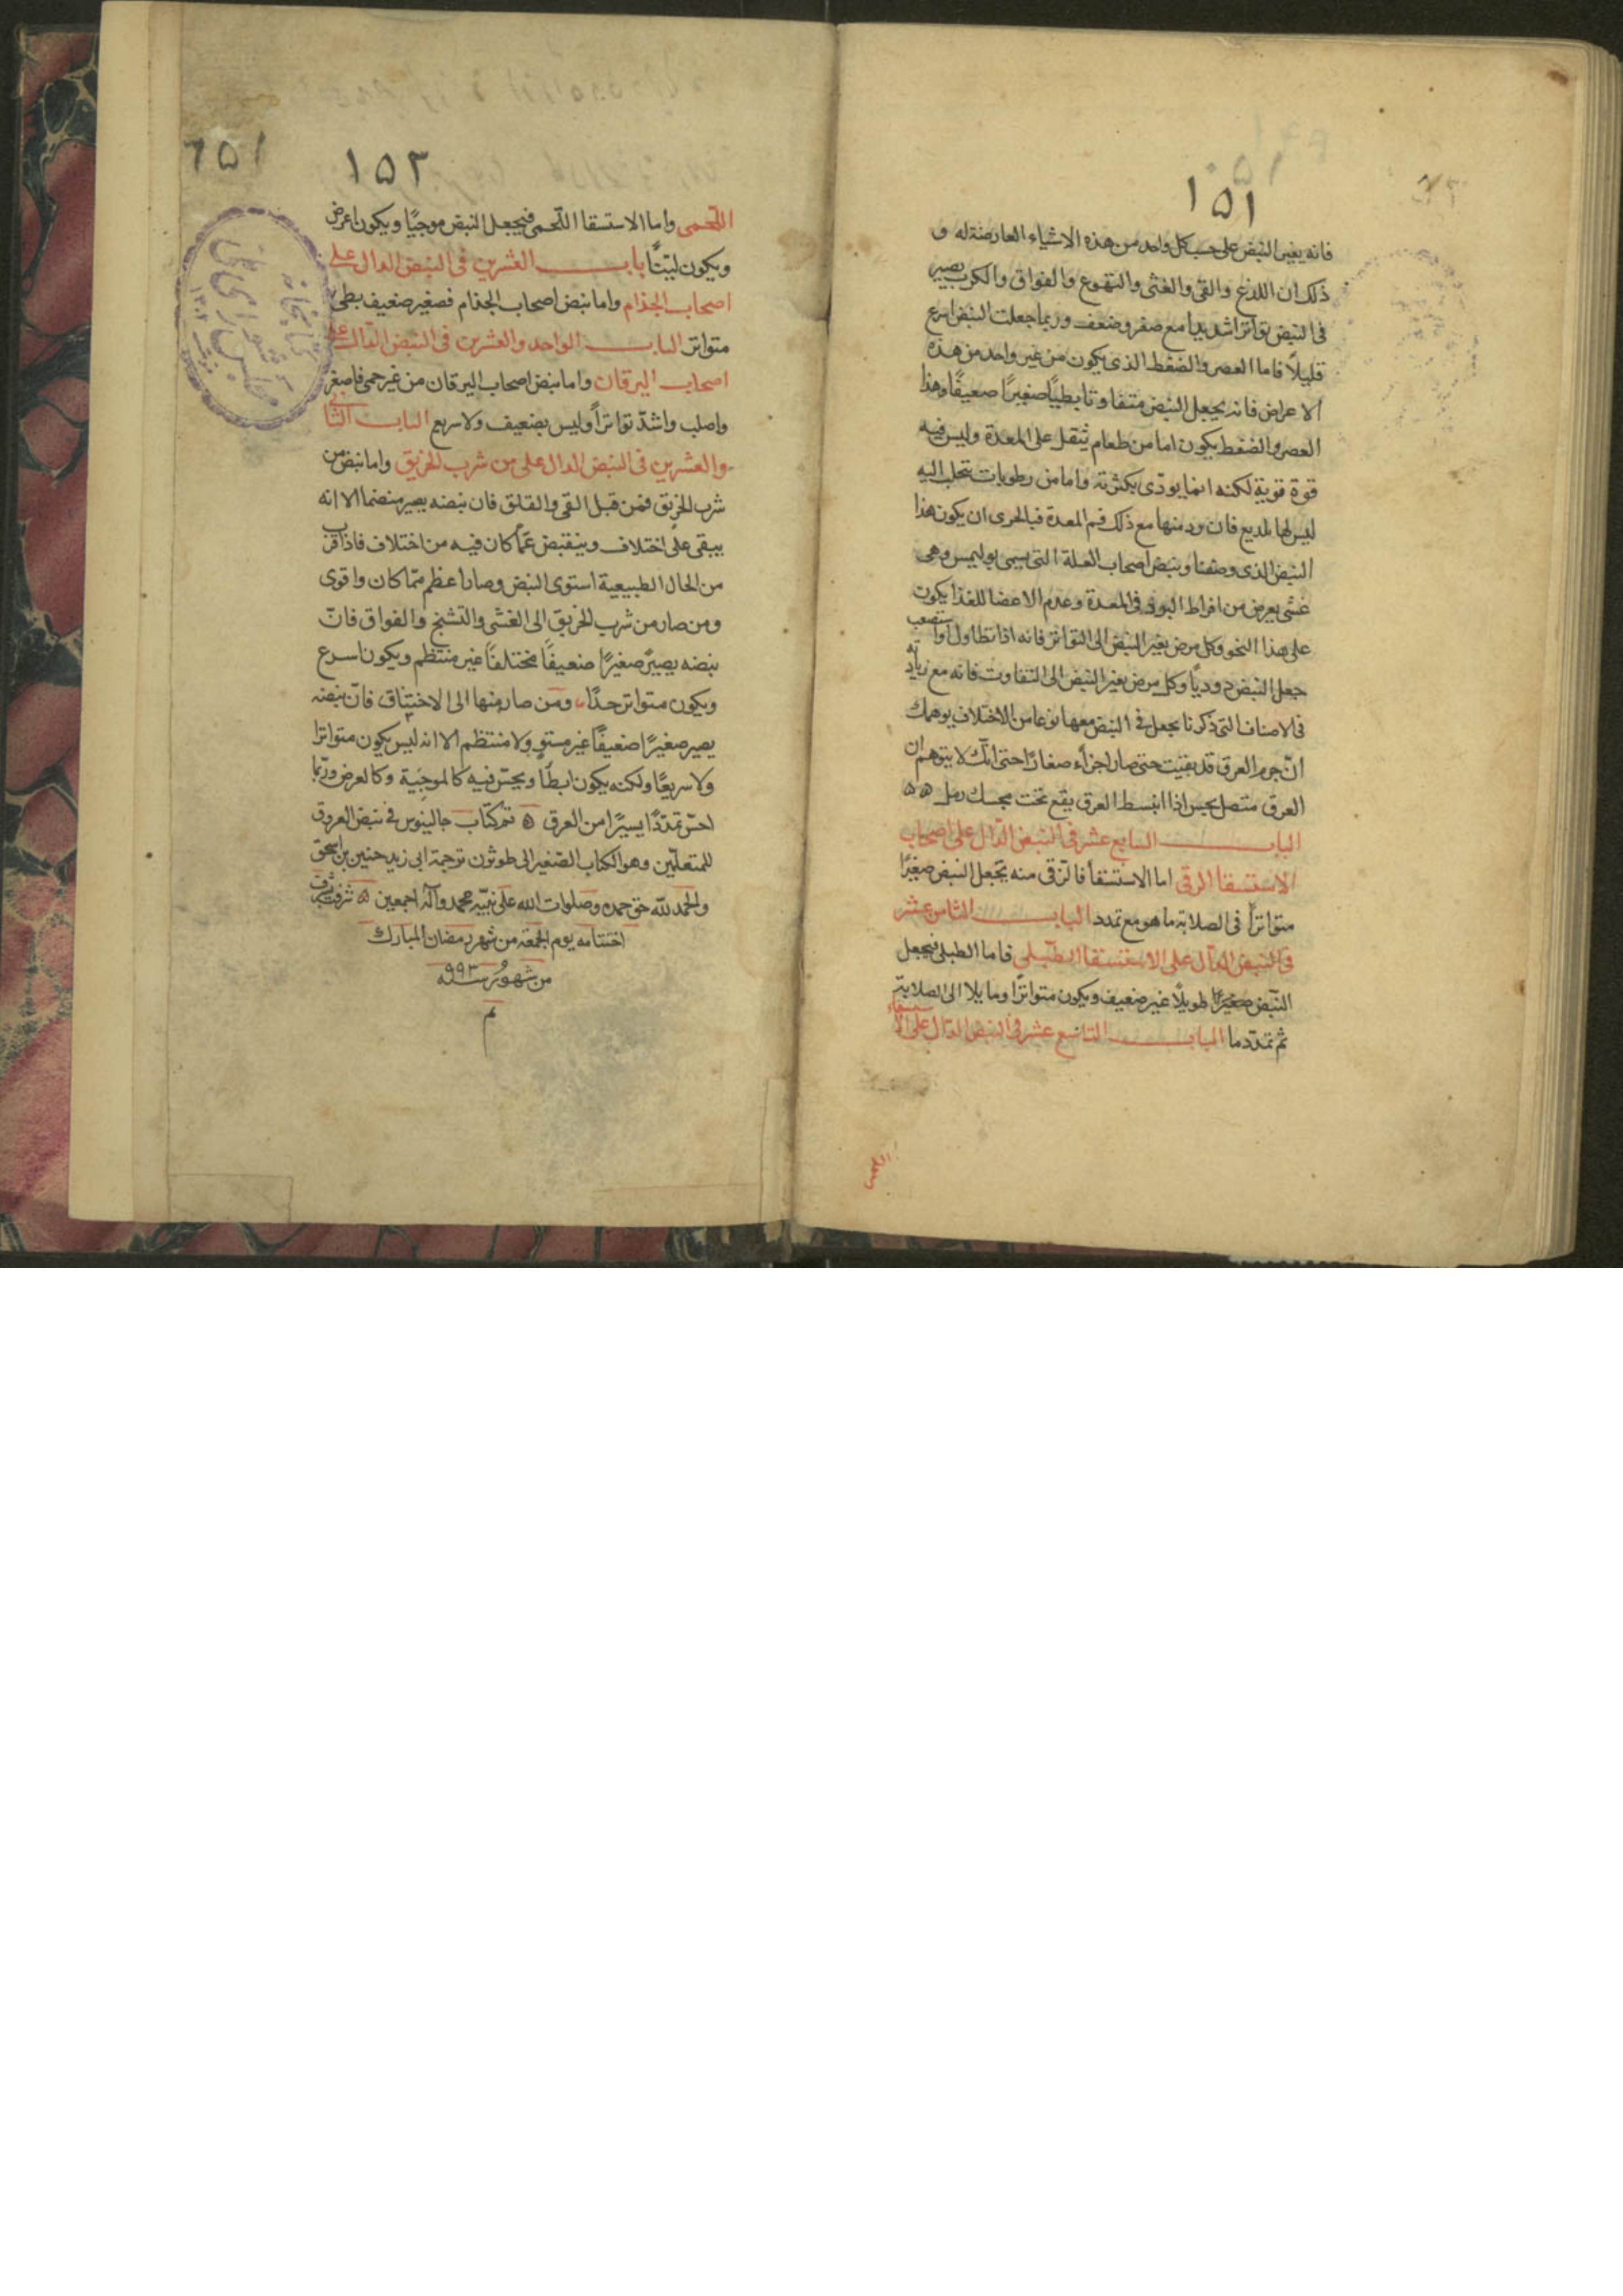 ١٥١
فانه يغير النبض على حسب كل واحد من هذه الاشياء العارضة له و
ذلك ان اللذع والقئ والغثى والتهوع والفواق والكرب يصير
فى النبض تواترا شديدا مع صغر وضعف وربما جعلت النبض اسرع
قليلاً فاما العصر والضغط الذى يكون من غير واحد من هذه
الاعراض فانه يجعل النبض متفاوتا بطيئا صغيرًا ضعيفًا وهذا
العصر والضغط يكون اما من طعام يثقل على المعدة وليس فيه
قوة قوية لكنه انما يوذى بكثرته واما من رطوبات تتحلب اليه
ليس لها لديع فان ورد منها مع ذلك فم المعدة فبالحرى ان يكون هذا
النبض الذى وصفنا ونبض اصحاب العلة التى يسمى بوليمس وهى
غشى يعرض من افراط البرد فى المعدة وعدم الاعضا للغذا يكون
على هذا النحو وكل مرض يغير النبض الى التواتر فانه اذا تطاول او استصعب
جعل النبض دوديًا وكل مرض يغير النبض الى التفاوت فانه مع زيادته
فى الاصناف التى ذكرنا يجعل فى النبض معها نوعا من الاختلاف يوهمك
ان جرم العرق قد تفتت حتى صار اجزاء صغارًا حتى انك لا تتوهم ان
العرق متصل يحس اذا انبسط العرق يقع تحت مجسك رمل
الباب السابع عشر فى النبض الدّال على اصحاب
الاستسقا الزقى اما الاستسقا فالزقى منه يجعل النبض صغيرًا
متواترًا فى الصلابة ما هو مع تمدد الباب الثامن عشر
فى النبض الدّال على الاستسقا الطبلى فاما الطبلى فيجعل
النّبض صغيرًا طويلًا غير ضعيف ويكون متواترًا ومايلا الى الصلابة
ثم تمدّد ما الباب التاسع عشر فى النبض الدّال على الاستسقاء
اللحمى
١٥٣
١٥٢
اللّحمى واما الاستسقا اللّحمى فيجعل النبض موجيًا ويكون اعرض
ويكون ليّنًا باب العشرين فى النبض الدال على
اصحاب الجذام واما نبض اصحاب الجذام فصغير ضعيف بطى
متواتر الباب الواحد والعشرين فى النبض الدّال على
اصحاب اليرقان واما نبض اصحاب اليرقان من غير حمى فاصغر
واصلب واشدّ تواترًا وليس بضعيف ولا سريع الباب الثانى
والعشرين فى النبض الدال على من شرب الخربق واما نبض من
شرب الخربق فمن قبل القى والقلق فان نبضه يصير منضما الا انه
يبقى على اختلاف وينقبض عمّا كان فيه من اختلاف فاذا قرب
من الحال الطبيعية استوى النبض وصار اعظم ممّا كان واقوى
ومن صار من شرب الخربق الى الغشى والتشنج والفواق فانّ
نبضه يصير صغيرًا ضعيفًا مختلفًا غير منتظم ويكون اسرع
ويكون متواتر جدًا ومن صار منها الى الاختناق فانّ نبضه
يصير صغيرًا ضعيفًا غير مستو ولا منتظم الا انه ليس يكون متواترا
ولا سريعًا ولكنه يكون ابطأ ويحسّ فيه كالموجية وكالعرض وربّما
احسّ تمدّدًا يسيرًا من العرق تم كتاب جالينوس فى نبض العروق
للمتعلّمين وهو الكتاب الصّغير الى طوثرن ترجمة ابى زيد حنين بن اسحق
والحمد للّه حق حمده وصلوات الله على نبيّه محمد وآله اجمعين
اختتامه يوم الجمعة من شهر رمضان المبارك
من شهور سنة ٩٩٣
تم
كتابخانه
مجلس شوراى ملى